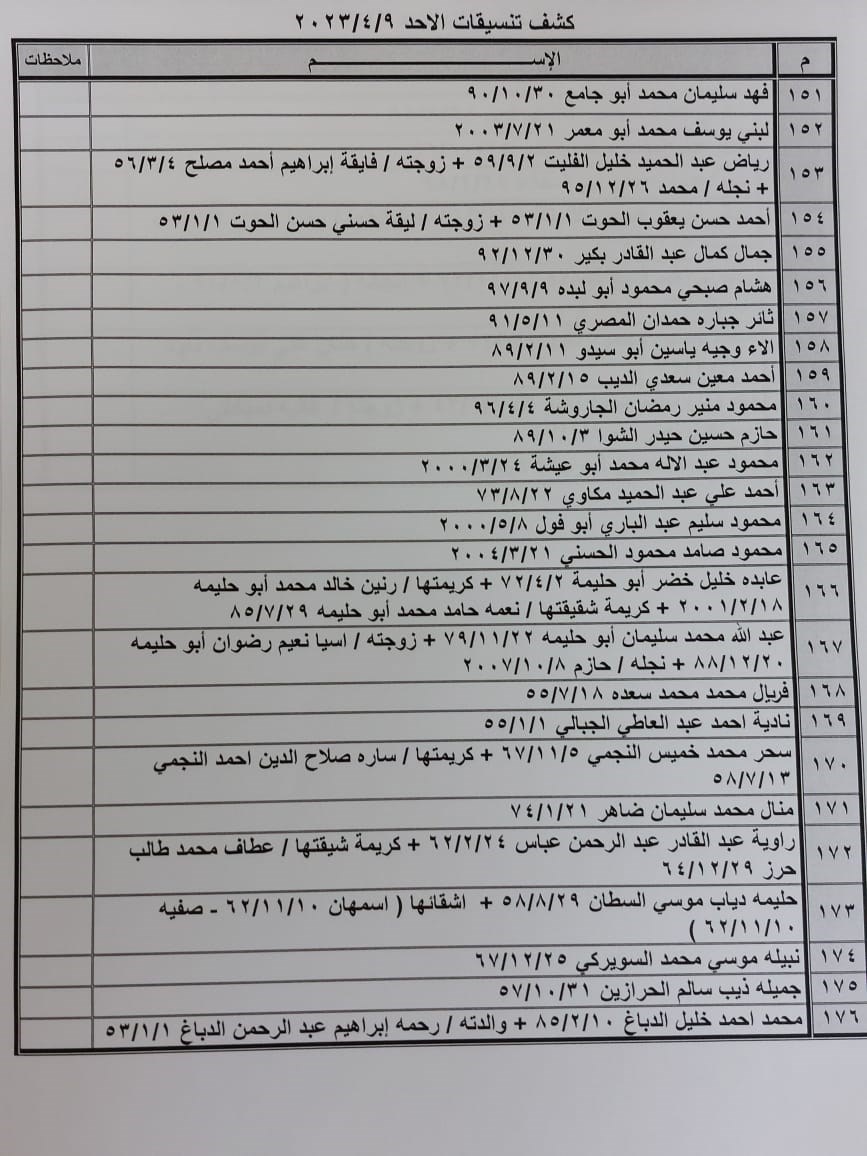 كشف تنسيقات الاحد ٢٠٢٣/٤/٩
م الإســـــــــم ملاحظات
١٥١ فهد سليمان محمد أبو جامع ٩٠/١٠/٣٠
١٥٢ لبني يوسف محمد أبو معمر ٢٠٠٣/٧/٢١
١٥٣ رياض عبد الحميد خليل الفليت ٥٩/٩/٢ + زوجته / فايقة إبراهيم أحمد مصلح ٥٦/٣/٤
+ نجله / محمد ٩٥/١٢/٢٦
١٥٤ أحمد حسن يعقوب الحوت ٥٣/١/١ + زوجته / ليقة حسني حسن الحوت ٥٣/١/١
١٥٥ جمال كمال عبد القادر بكير ٩٢/١٢/٣٠
١٥٦ هشام صبحي محمود أبو لبده ٩٧/٩/٩
١٥٧ ثائر جباره حمدان المصري ٩١/٥/١١
١٥٨ الاء وجيه ياسين أبو سيدو ٨٩/٢/١١
١٥٩ أحمد معين سعدي الديب ٨٩/٢/١٥
١٦٠ محمود منير رمضان الجاروشة ٩٦/٤/٤
١٦١ حازم حسين حيدر الشوا ٨٩/١٠/٣
١٦٢ محمود عبد الاله محمد أبو عيشة ٢٠٠٠/٣/٢٤
١٦٣ أحمد علي عبد الحميد مكاوي ٧٣/٨/٢٢
١٦٤ محمود سليم عبد الباري أبو فول ٢٠٠٠/٥/٨
١٦٥ محمود صامد محمود الحسني ٢٠٠٤/٣/٢١
١٦٦ عابده خليل خضر أبو حليمة ٧٢/٤/٢ + كريمتها / رنين خالد محمد أبو حليمه
٢٠٠١/٢/١٨ + كريمة شقيقتها / نعمه حامد محمد أبو حليمه ٨٥/٧/٢٩
١٦٧ عبد الله محمد سليمان أبو حليمه ٧٩/١١/٢٢ + زوجته / اسيا نعيم رضوان أبو حليمه
٨٨/١٢/٢٠ + نجله / حازم ٢٠٠٧/١٠/٨
١٦٨ فريال محمد محمد سعده ٥٥/٧/١٨
١٦٩ نادية احمد عبد العاطي الجبالي ٥٥/١/١
١٧٠ سحر محمد خميس النجمي ٦٧/١١/٥ + كريمتها / ساره صلاح الدين احمد النجمي
٥٨/٧/١٣
١٧١ منال محمد سليمان ضاهر ٧٤/١/٢١
١٧٢ راوية عبد القادر عبد الرحمن عباس ٦٢/٢/٢٤ + كريمة شيقتها / عطاف محمد طالب
حرز ٦٤/١٢/٢٩
١٧٣ حليمه دياب موسي السطان ٥٨/٨/٢٩ + اشقائها ( اسمهان ٦٢/١١/١٠ - صفيه
٦٢/١١/١٠ )
١٧٤ نبيله موسي محمد السويركي ٦٧/١٢/٢٥
١٧٥ جميله ذيب سالم الحرازين ٥٧/١٠/٣١
١٧٦ محمد احمد خليل الدباغ ٨٥/٢/١٠ + والدته / رحمه إبراهيم عبد الرحمن الدباغ ٥٣/١/١